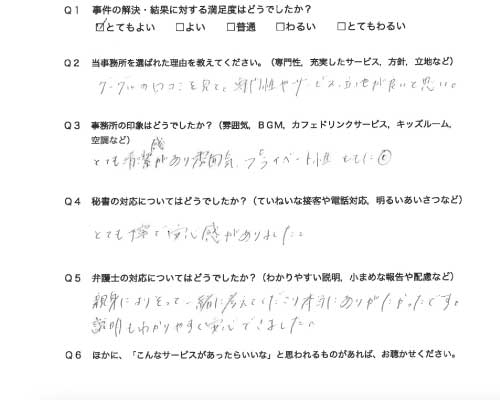 Q1 事件の解決・結果に対する満足度はどうでしたか？
☑とてもよい □よい □普通 □わるい □とてもわるい
Q2 当事務所を選ばれた理由を教えてください。（専門性，充実したサービス，方針，立地など）
グーグルの口コミを見て。専門性やサービス、立地が良いと思い。
Q3 事務所の印象はどうでしたか？（雰囲気，ＢＧＭ，カフェドリンクサービス，キッズルーム，
空調など）
とても清潔感があり雰囲気、プライベート性ともに◎
Q4 秘書の対応についてはどうでしたか？（ていねいな接客や電話対応，明るいあいさつなど）
とても 安心感がありました。
Q5 弁護士の対応についてはどうでしたか？（わかりやすい説明，小まめな報告や配慮など）
親身によりそって一緒に考えてくださり本当にありがたかったです。
説明もわかりやすく安心できました。
Q6 ほかに、「こんなサービスがあったらいいな」と思われるものがあれば、お聴かせください。